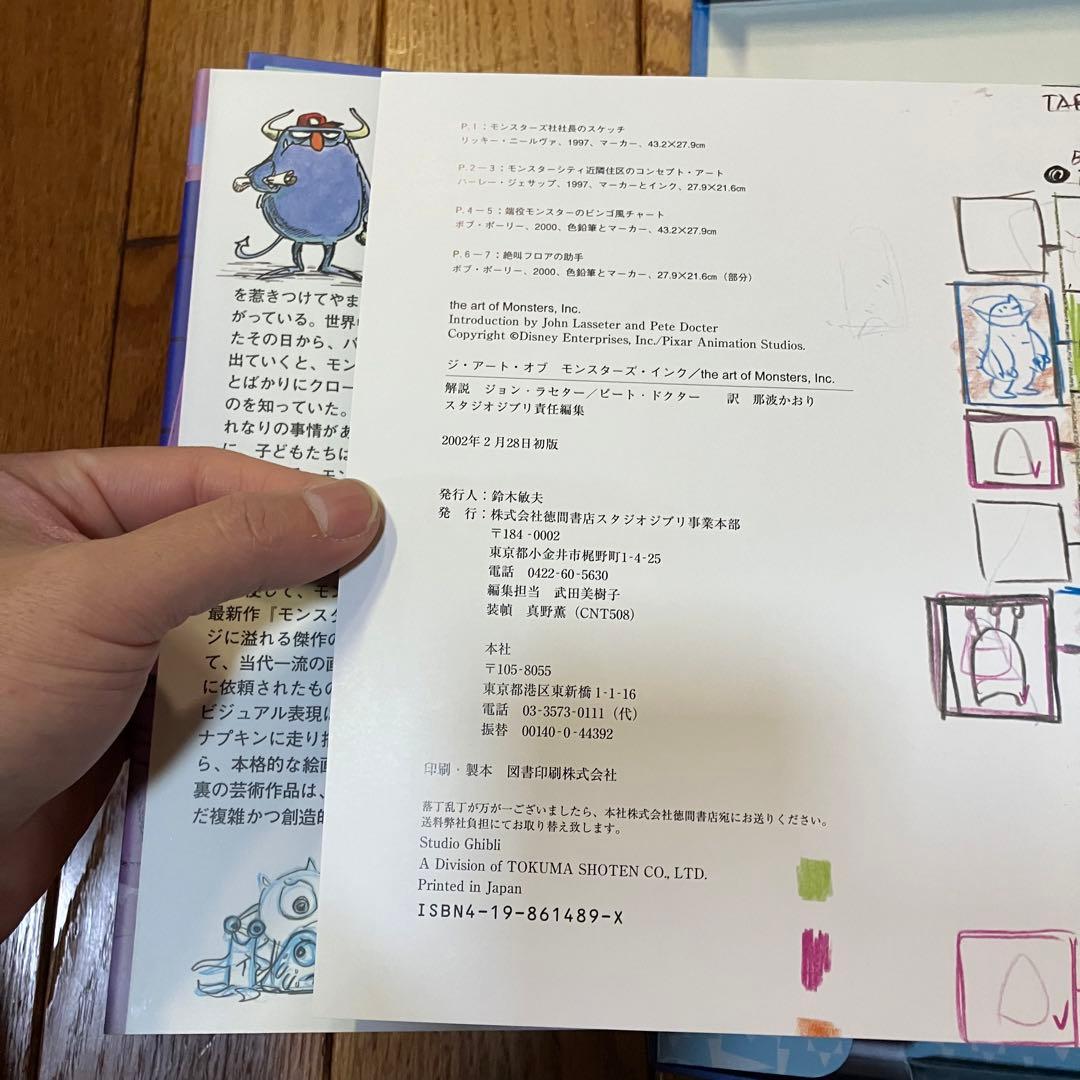 P.1：モンスターズ社社長のスケッチ
リッキー・ニールヴァ、1997、マーカー、43.2×27.9㎝
P.2－3：モンスターシティ近隣住区のコンセプト・アート
ハーレー・ジェサップ、1997、マーカーとインク、27.9×21.6㎝
P.4－5：端役モンスターのビンゴ風チャート
ボブ・ポーリー、2000、色鉛筆とマーカー、43.2×27.9㎝
P.6－7：絶叫フロアの助手
ボブ・ポーリー、2000、色鉛筆とマーカー、27.9×21.6㎝（部分）
the art of Monsters, Inc.
Introduction by John Lasseter and Pete Docter
Copyright ©Disney Enterprises, Inc./Pixar Animation Studios.
ジ・アート・オブ　モンスターズ・インク／the art of Monsters, Inc.
解説　ジョン・ラセター／ピート・ドクター　　訳　那波かおり
スタジオジブリ責任編集
2002年2月28日初版
発行人：鈴木敏夫
発　行：株式会社徳間書店スタジオジブリ事業本部
〒184-0002
東京都小金井市梶野町1-4-25
電話　0422-60-5630
編集担当　武田美樹子
装幀　真野薫（CNT508）
本社
〒105-8055
東京都港区東新橋1-1-16
電話　03-3573-0111（代）
振替　00140-0-44392
印刷・製本　図書印刷株式会社
落丁乱丁が万が一ございましたら、本社株式会社徳間書店宛にお送りください。
送料弊社負担にてお取り替え致します。
Studio Ghibli
A Division of TOKUMA SHOTEN CO., LTD.
Printed in Japan
ISBN4-19-861489-X
を惹きつけてやま
がっている。世界
たその日から、バ
出ていくと、モン
とばかりにクロー
のを知っていた。
れなりの事情があ
に、子どもたちは
最新作『モンスタ
ジに溢れる傑作の
て、当代一流の画
に依頼されたもの
ビジュアル表現に
ナプキンに走り描
ら、本格的な絵画
裏の芸術作品は、
だ複雑かつ創造的